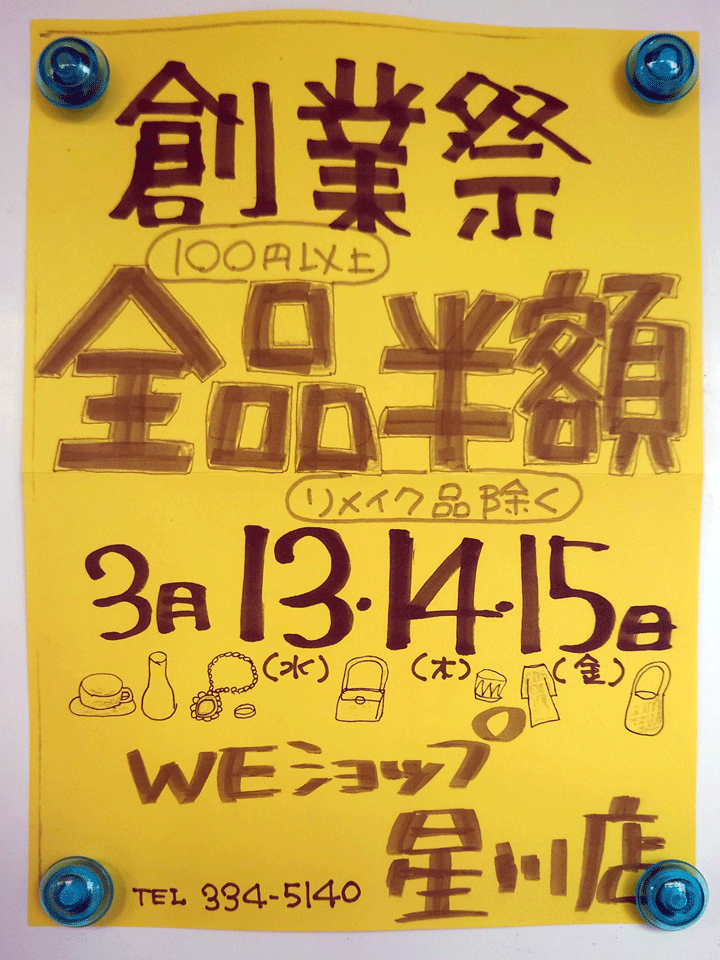 創業祭
100円以上
全品半額
リメイク品除く
3月13・14・15日
(水) (木) (金)
WEショップ
星川店
TEL 334-5140